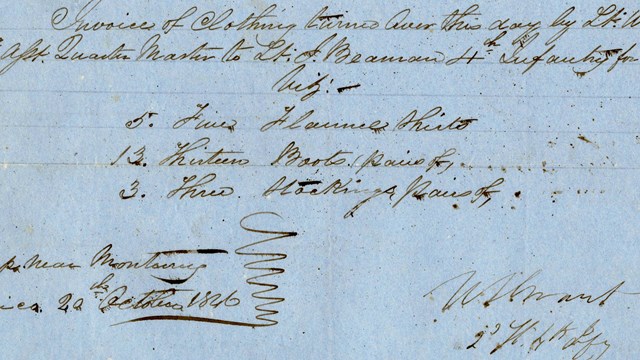 Invoice of Clothing turned over this day by Lt. U
Asst. Quarter Master to Lt. J. Beaman 4th Infantry for
Viz: —
5. Five Flannel Shirts
13. Thirteen Boots (pairs of)
3. Three Stockings pairs of
near Monterey
2d October 1846
U S Grant
2d Lt. 4th Infy